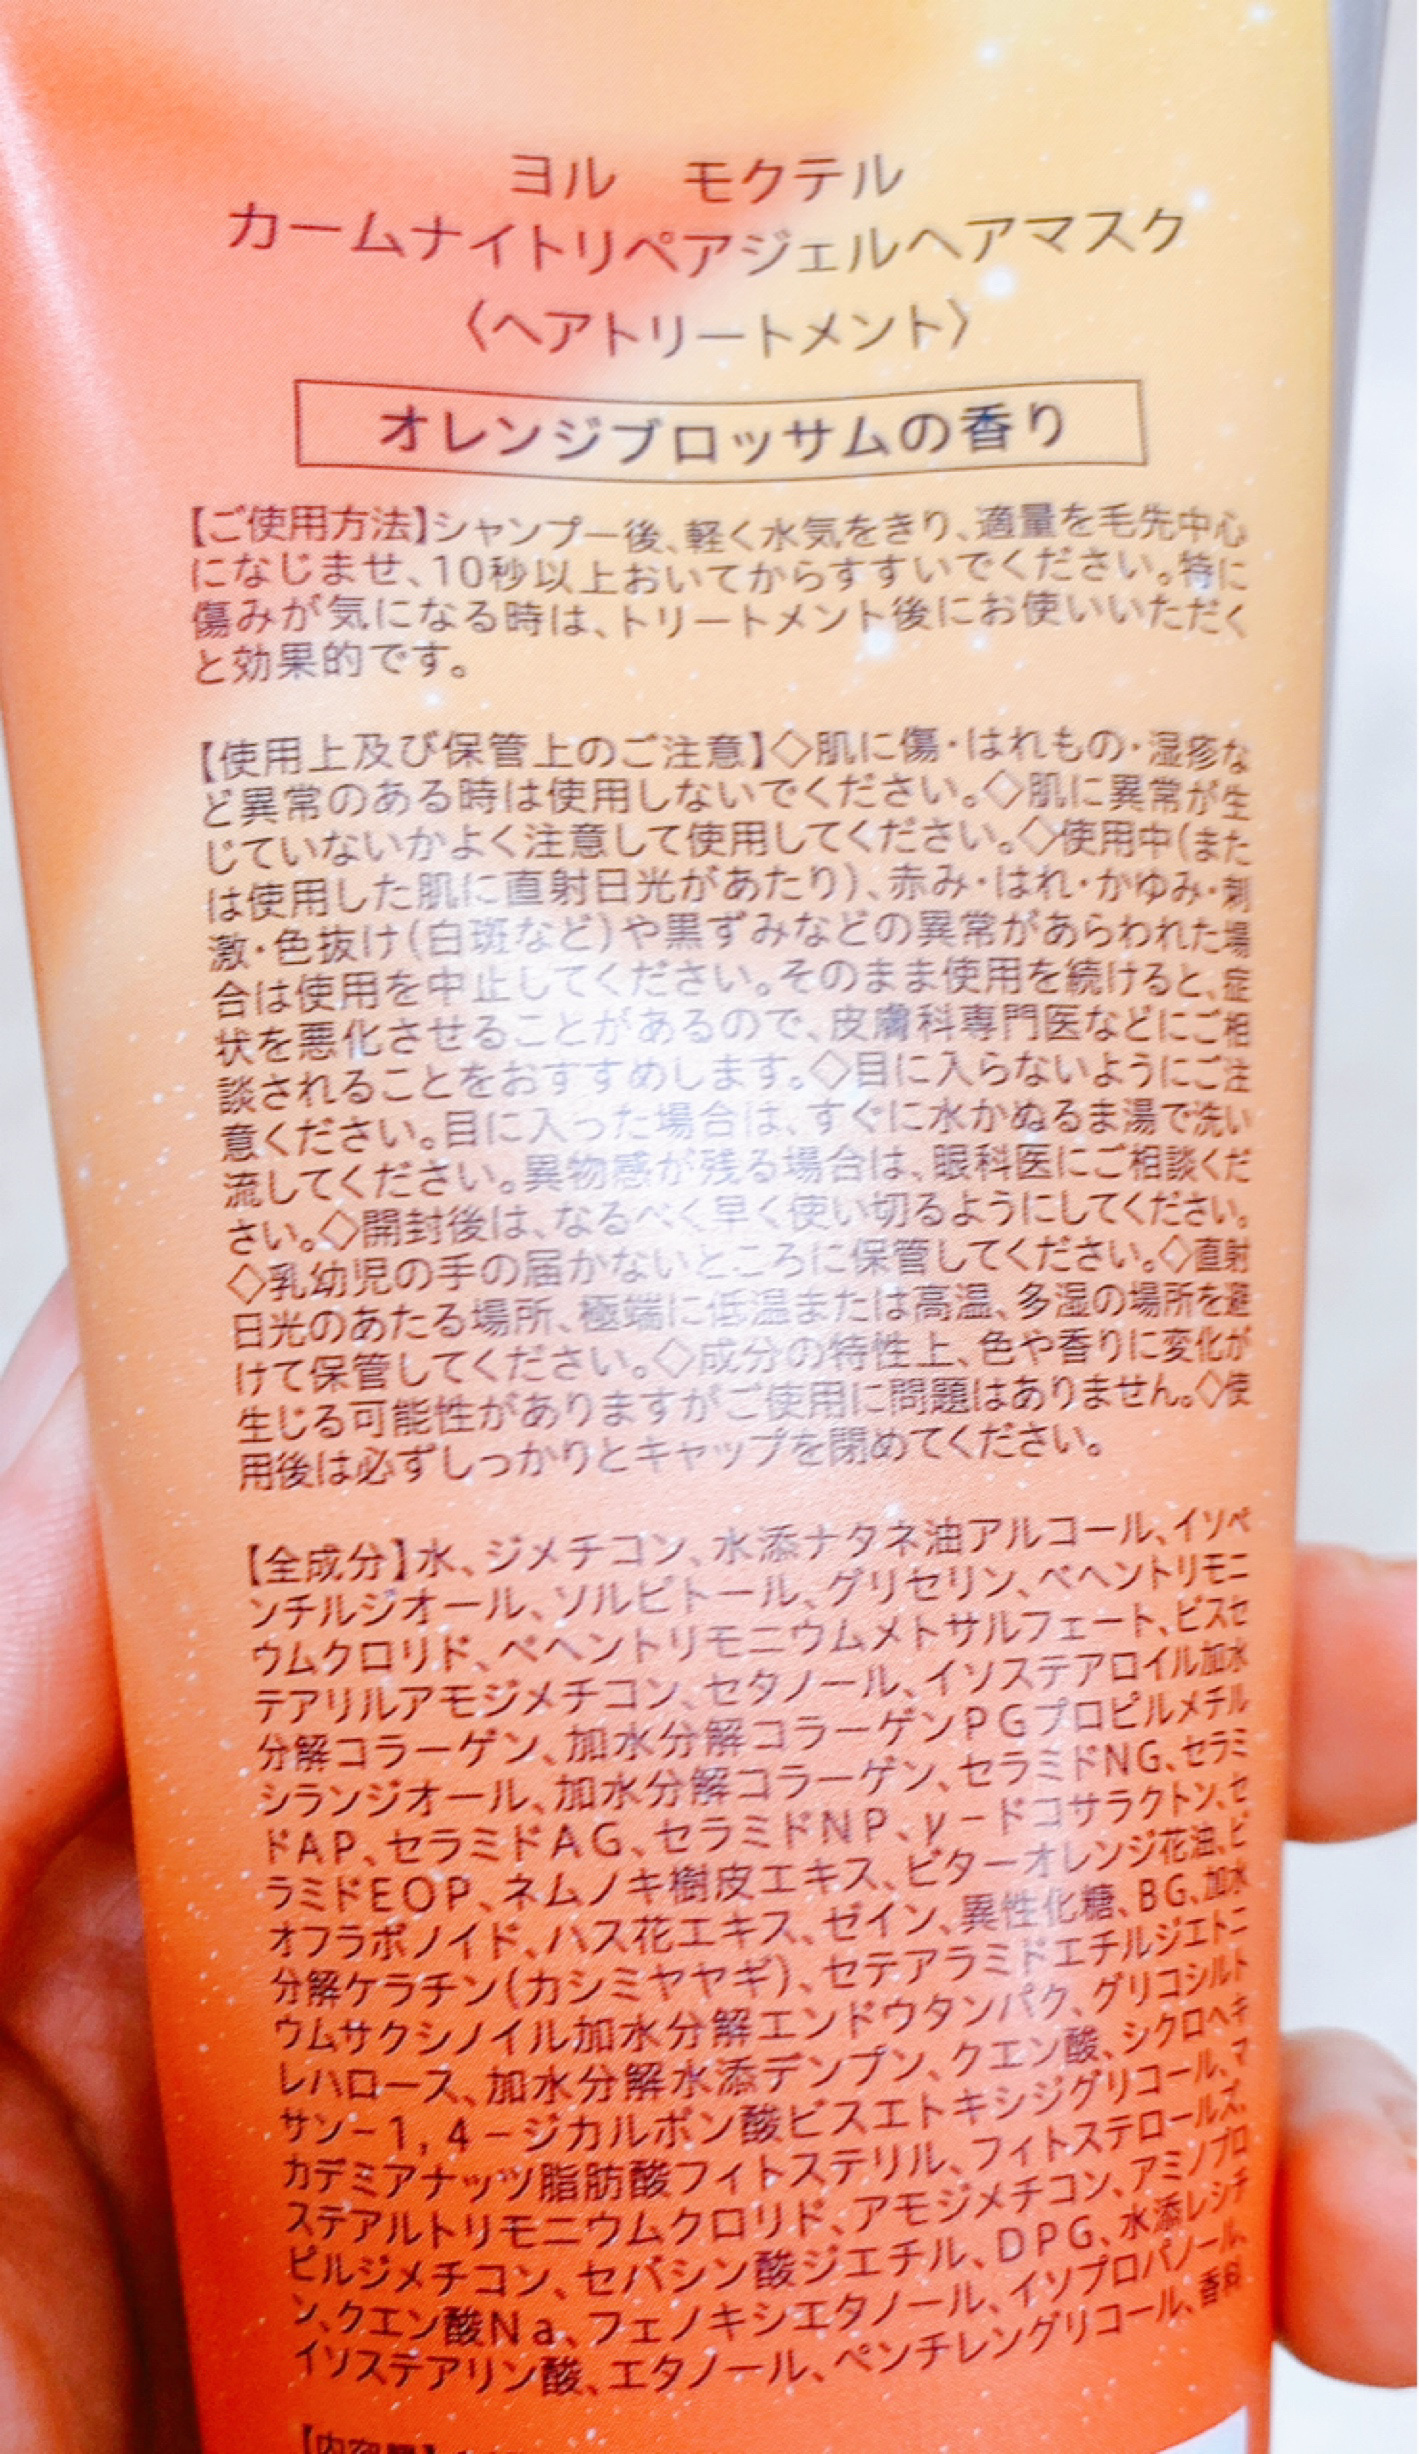 ヨル モクテル
カームナイトリペアジェルヘアマスク
〈ヘアトリートメント〉
オレンジブロッサムの香り
【ご使用方法】シャンプー後、軽く水気をきり、適量を毛先中心
になじませ、10秒以上おいてからすすいでください。特に
傷みが気になる時は、トリートメント後にお使いいただく
と効果的です。
【使用上及び保管上のご注意】◇肌に傷・はれもの・湿疹な
ど異常のある時は使用しないでください。◇肌に異常が生
じていないかよく注意して使用してください。◇使用中(また
は使用した肌に直射日光があたり)、赤み・はれ・かゆみ・刺
激・色抜け(白斑など)や黒ずみなどの異常があらわれた場
合は使用を中止してください。そのまま使用を続けると、症
状を悪化させることがあるので、皮膚科専門医などにご相
談されることをおすすめします。◇目に入らないようにご注
意ください。目に入った場合は、すぐに水かぬるま湯で洗い
流してください。異物感が残る場合は、眼科医にご相談くだ
さい。◇開封後は、なるべく早く使い切るようにしてください。
◇乳幼児の手の届かないところに保管してください。◇直射
日光のあたる場所、極端に低温または高温、多湿の場所を避
けて保管してください。◇成分の特性上、色や香りに変化が
生じる可能性がありますがご使用に問題はありません。◇使
用後は必ずしっかりとキャップを閉めてください。
【全成分】水、ジメチコン、水添ナタネ油アルコール、イソペ
ンチルジオール、ソルビトール、グリセリン、ベヘントリモニ
ウムクロリド、ベヘントリモニウムメトサルフェート、ビスセ
テアリルアモジメチコン、セタノール、イソステアロイル加水
分解コラーゲン、加水分解コラーゲンPGプロピルメチル
シランジオール、加水分解コラーゲン、セラミドNG、セラミ
ドAP、セラミドAG、セラミドNP、γ－ドコサラクトン、セ
ラミドEOP、ネムノキ樹皮エキス、ビターオレンジ花油、ビ
オフラボノイド、ハス花エキス、ゼイン、異性化糖、BG、加水
分解ケラチン(カシミヤヤギ)、セテアラミドエチルジエトニ
ウムサクシノイル加水分解エンドウタンパク、グリコシルト
レハロース、加水分解水添デンプン、クエン酸、シクロヘキ
サン－1，4－ジカルボン酸ビスエトキシジグリコール、マ
カデミアナッツ脂肪酸フィトステリル、フィトステロールズ、
ステアルトリモニウムクロリド、アモジメチコン、アミノプロ
ピルジメチコン、セバシン酸ジエチル、DPG、水添レシチ
ン、クエン酸Na、フェノキシエタノール、イソプロパノール、
イソステアリン酸、エタノール、ペンチレングリコール、香料